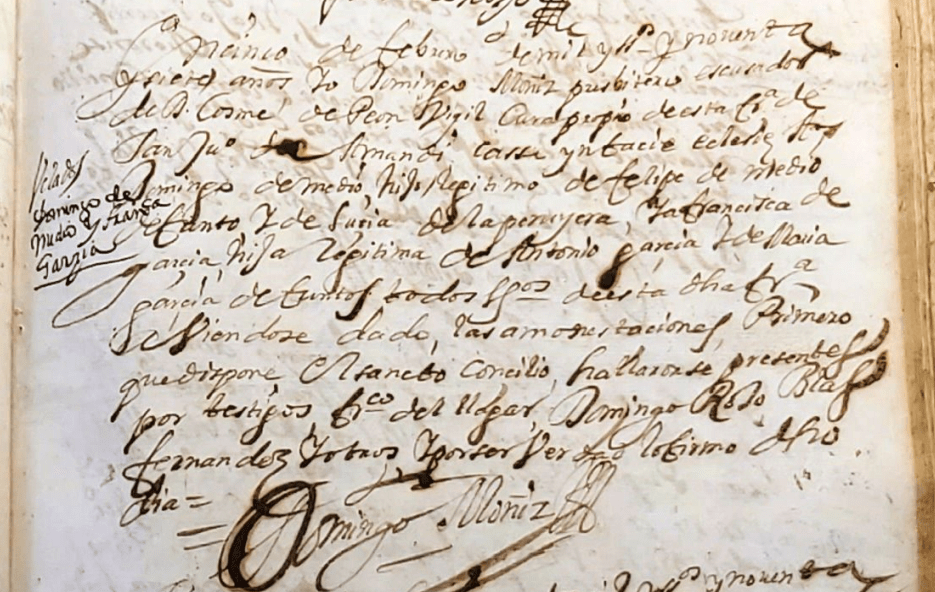 en cinco de febrero de mil y ssº y noventa
y siete años Yo Domingo Moñiz presbitero escusador
de D. Cosme de Peon Vigil Cura propio de esta frª de
San Juº de Amandi casse yn facie eclesie
Domingo de medio hijo legitimo de felipe de medio
de Canto, Y de de la peruyera, Ya francisca de
garcia, hija legitima de Antonio garcia Y de Maria
garcia, de todos de esta dha frª
aviendose dado, las amonestaciones, Primero
que dispone, el sancto concilio, hallaronse presentes
por testigos, frco del llagar, Domingo Roso Blas
fernandez Y otros Y por ser Verdad lo firmo dho
dia =
Domingo Moñiz
Velados
Domingo de
medio Y franca
Garzia
y noventa